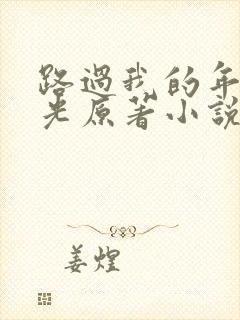 路過我的年
光原著小說
姜煌